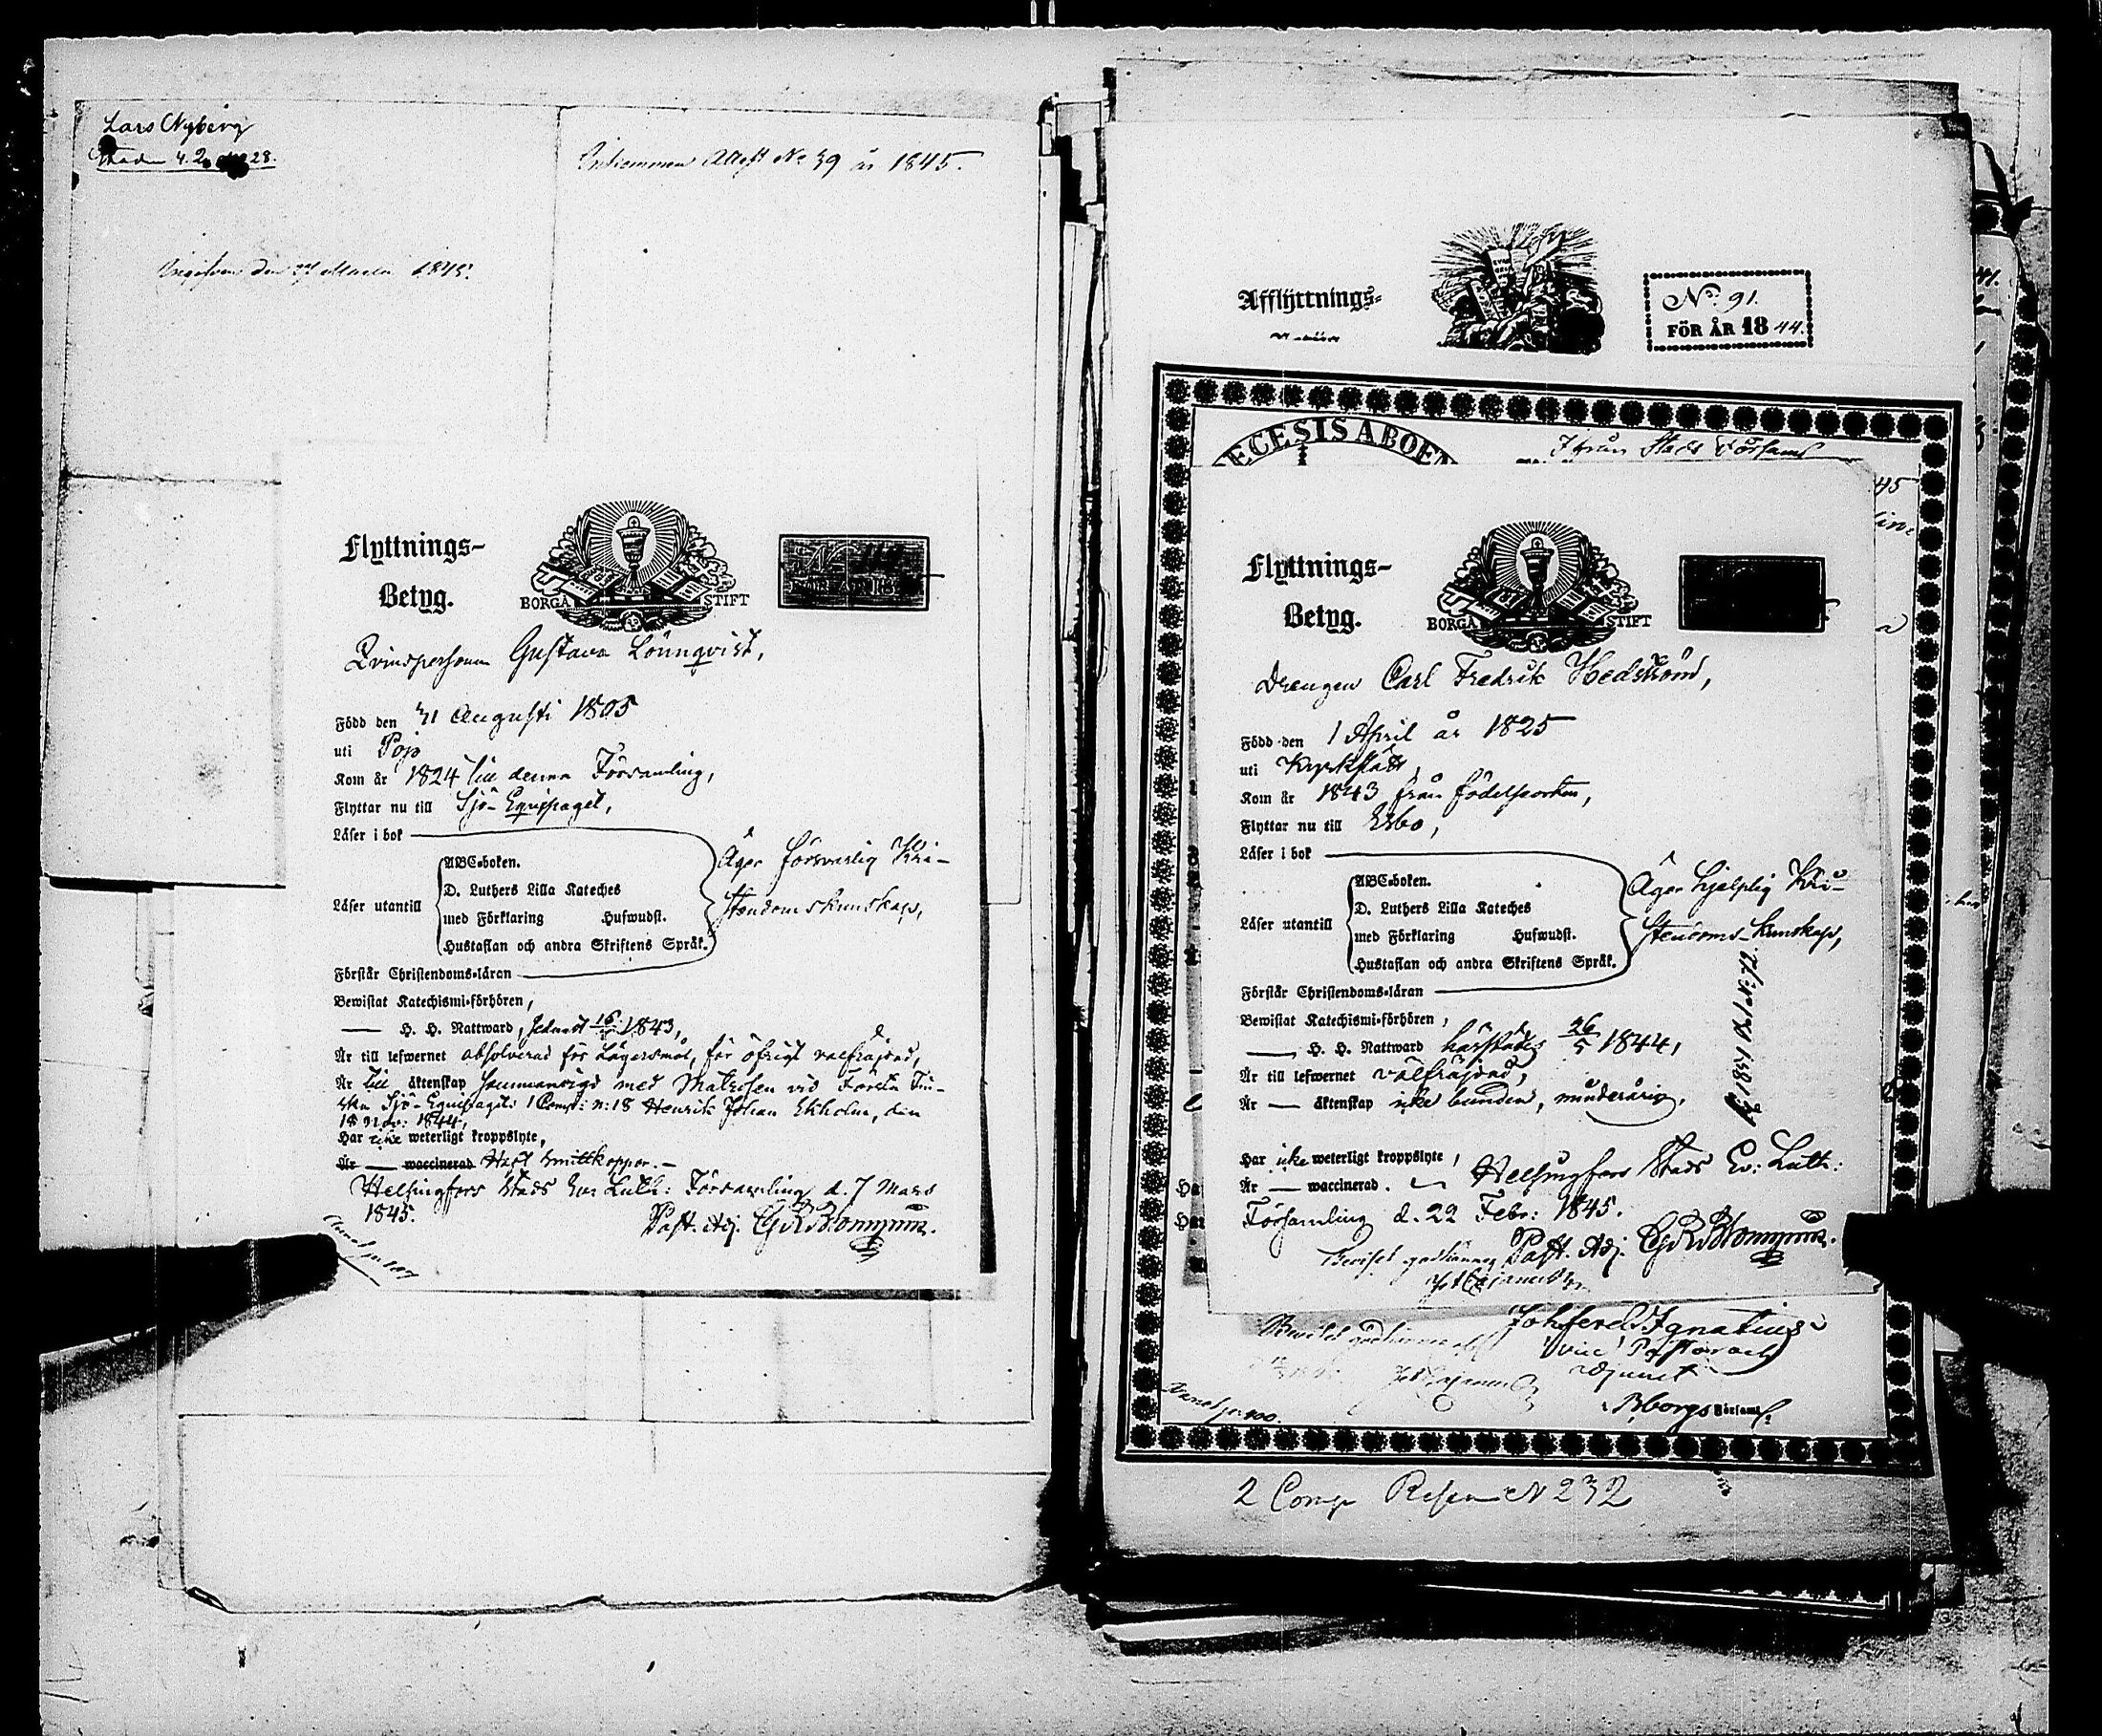 Lars Nyberg
Inkommen Attest No 39 år 1845.
den 27 Martii 1845.
Flyttnings-
Betyg.
BORGÅ STIFT
No 119
Qvinspersonen Gustava Lönnqvist,
Född den 31 Augusti 1805
uti Pojo
Kom år 1824 till denna Församling,
Flyttar nu till Sjö-Equipaget,
Läser i bok
ABC-boken.
D. Luthers Lilla Kateches
Läser utantill
med Förklaring Hufwudst.
Hustaflan och andra Skriftens Språk.
Äger försvarlig Kri-
stendomskunskap,
Förstår Christendoms-läran
Bewistat Katechismi-förhören,
— H. H. Nattward, sednast 16/4 1843,
Är till lefwernet absolverad för Lägersmål, för öfrigt välfräjdad,
Är till äktenskap sammanvigd med Matrosen vid Första Fin-
ska Sjö-Equipagets 1 Comp: n: 18 Henrik Johan Ekholm, den
18 nov: 1844,
Har icke weterligt kroppslyte,
Är — waccinerad Haft Smittkoppor. —
Helsingfors Stads Ev: Luth: Församling d. 7 Mars
1845.
Past. Adj. G. R. Blommqvist.
Afflyttnings-
No: 91.
FÖR ÅR 1844.
ECESIS ABOEN
Ifrån Stads Församl
Flyttnings-
Betyg.
BORGÅ STIFT
Drengen Carl Fredrik Hedström,
Född den 1 April år 1825
uti Kyrkslätt,
Kom år 1843 från födelseorten,
Flyttar nu till Esbo,
Läser i bok
ABC-boken.
D. Luthers Lilla Kateches
Läser utantill
med Förklaring Hufwudst.
Hustaflan och andra Skriftens Språk.
Äger hjelplig Kri-
stendoms-kunskap,
Förstår Christendoms-läran
Bewistat Katechismi-förhören,
— H. H. Nattward härstädes 26/5 1844,
Är till lefwernet välfräjdad,
Är — äktenskap icke bunden, minderårig.
Har icke weterligt kroppslyte,
Är — waccinerad.
Helsingfors Stads Ev: Luth:
Församling d. 22 Febr: 1845.
Past. Adj. G. R. Blommqvist.
Beviset godkännes
Joh ferd Ignatius
vice Pastor och
adjunct
Beviset godkännes
Annot. n. 100.
Bborgs Församl:
2 Comp Reserv N 232